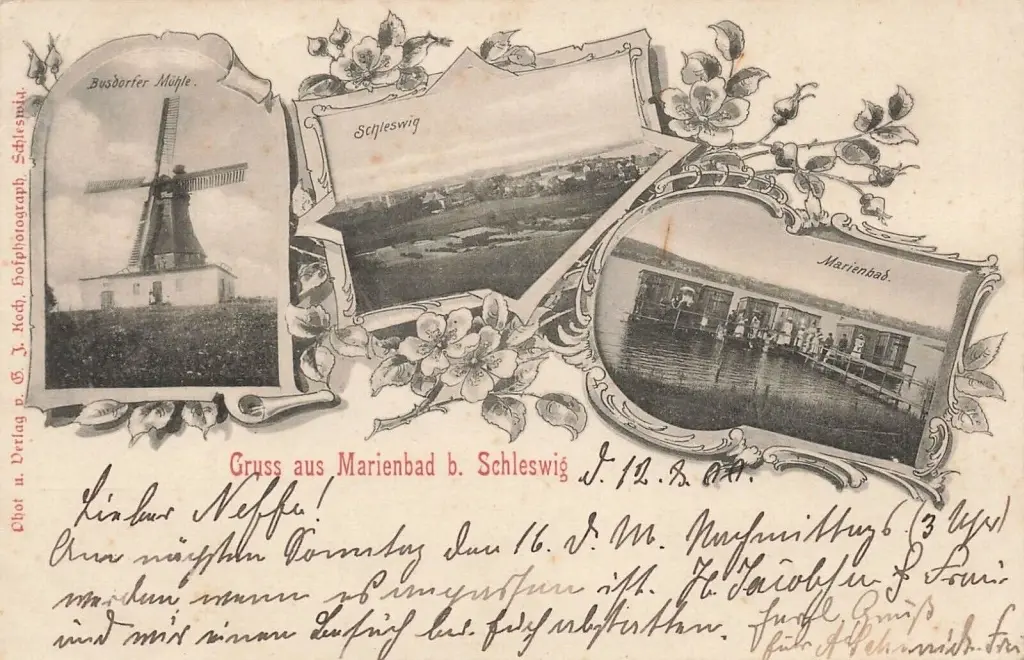 Phot u. Verlag v. G. J. Koch, Hofphotograph, Schleswig.
Busdorfer Mühle.
Schleswig
Marienbad.
Gruss aus Marienbad b. Schleswig
d. 12.
Lieber Neffe!
Am nächsten Sonntag den 16. d. M. Nachmittags (3 Uhr)
werden wenn es angepassen ist. H. Jacobsen & Frau
und wir einen Besuch bei Euch abstatten.
Gruß
A Schmidt. Frau